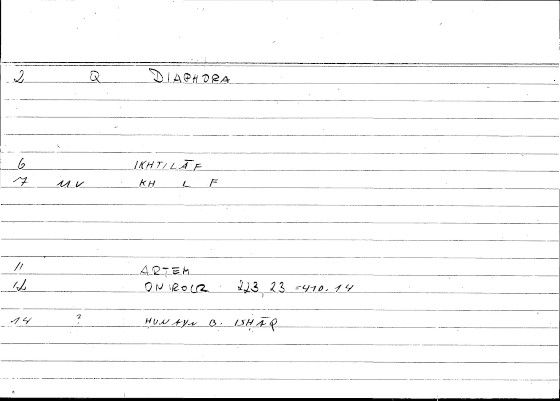 2 Q DIAPHORA
6 IKHTILĀF
7 MV KH L F
11 ARTEM
12 ONIROCR 223, 23 = 410. 14
14 ? HUNAYN B. ISHĀQ